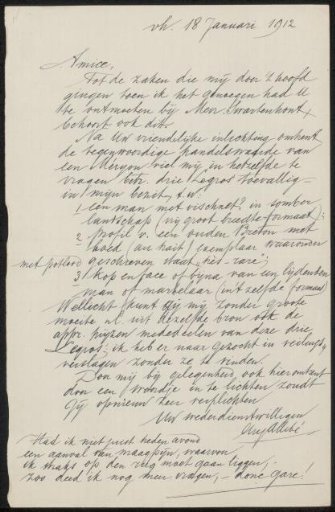 vh. 18 Januari 1912
Amice,
Tot de zaken die mij door 't hoofd
gingen toen ik het genoegen had U
te ontmoeten bij Mevr. Swartenhont,
behoort ook dit.
Na Uw vriendelijke inlichting omtrent
de tegenwoordige handelswaarde van
een Meryon viel mij in hetzelfde te
vragen voor drie Legros toevallig
in mijn bezit, t.w.
1 een man met vischnet? in somber
landschap (in groot breedte formaat);
2 profil v. een ouden Breton met
hoed (au trait) exemplaar waaronder
met potlood geschreven staat "très-rare";
3 kop en face of byna van een lijdenden
man of martelaar (in 't zelfde formaat)
Wellicht kunt Gij mij zonder groote
moeite uit dezelfde bron ook de
appr. prijzen mededeelen van deze drie
Legros; ik heb er naar gezocht in veiling-
verslagen zonder ze te vinden.
Door mij bij gelegenheid ook hieromtrent
door een woordje in te lichten zoudt
Gij opnieuw zeer verplichten
Uw wederdienstwilligen
Aug Allebé
Had ik niet juist heden avond
een aanval van maagpijn, waarvoor
ik straks op den rug moet gaan liggen,
zoo deed ik nog meer vragen, – donc gare!